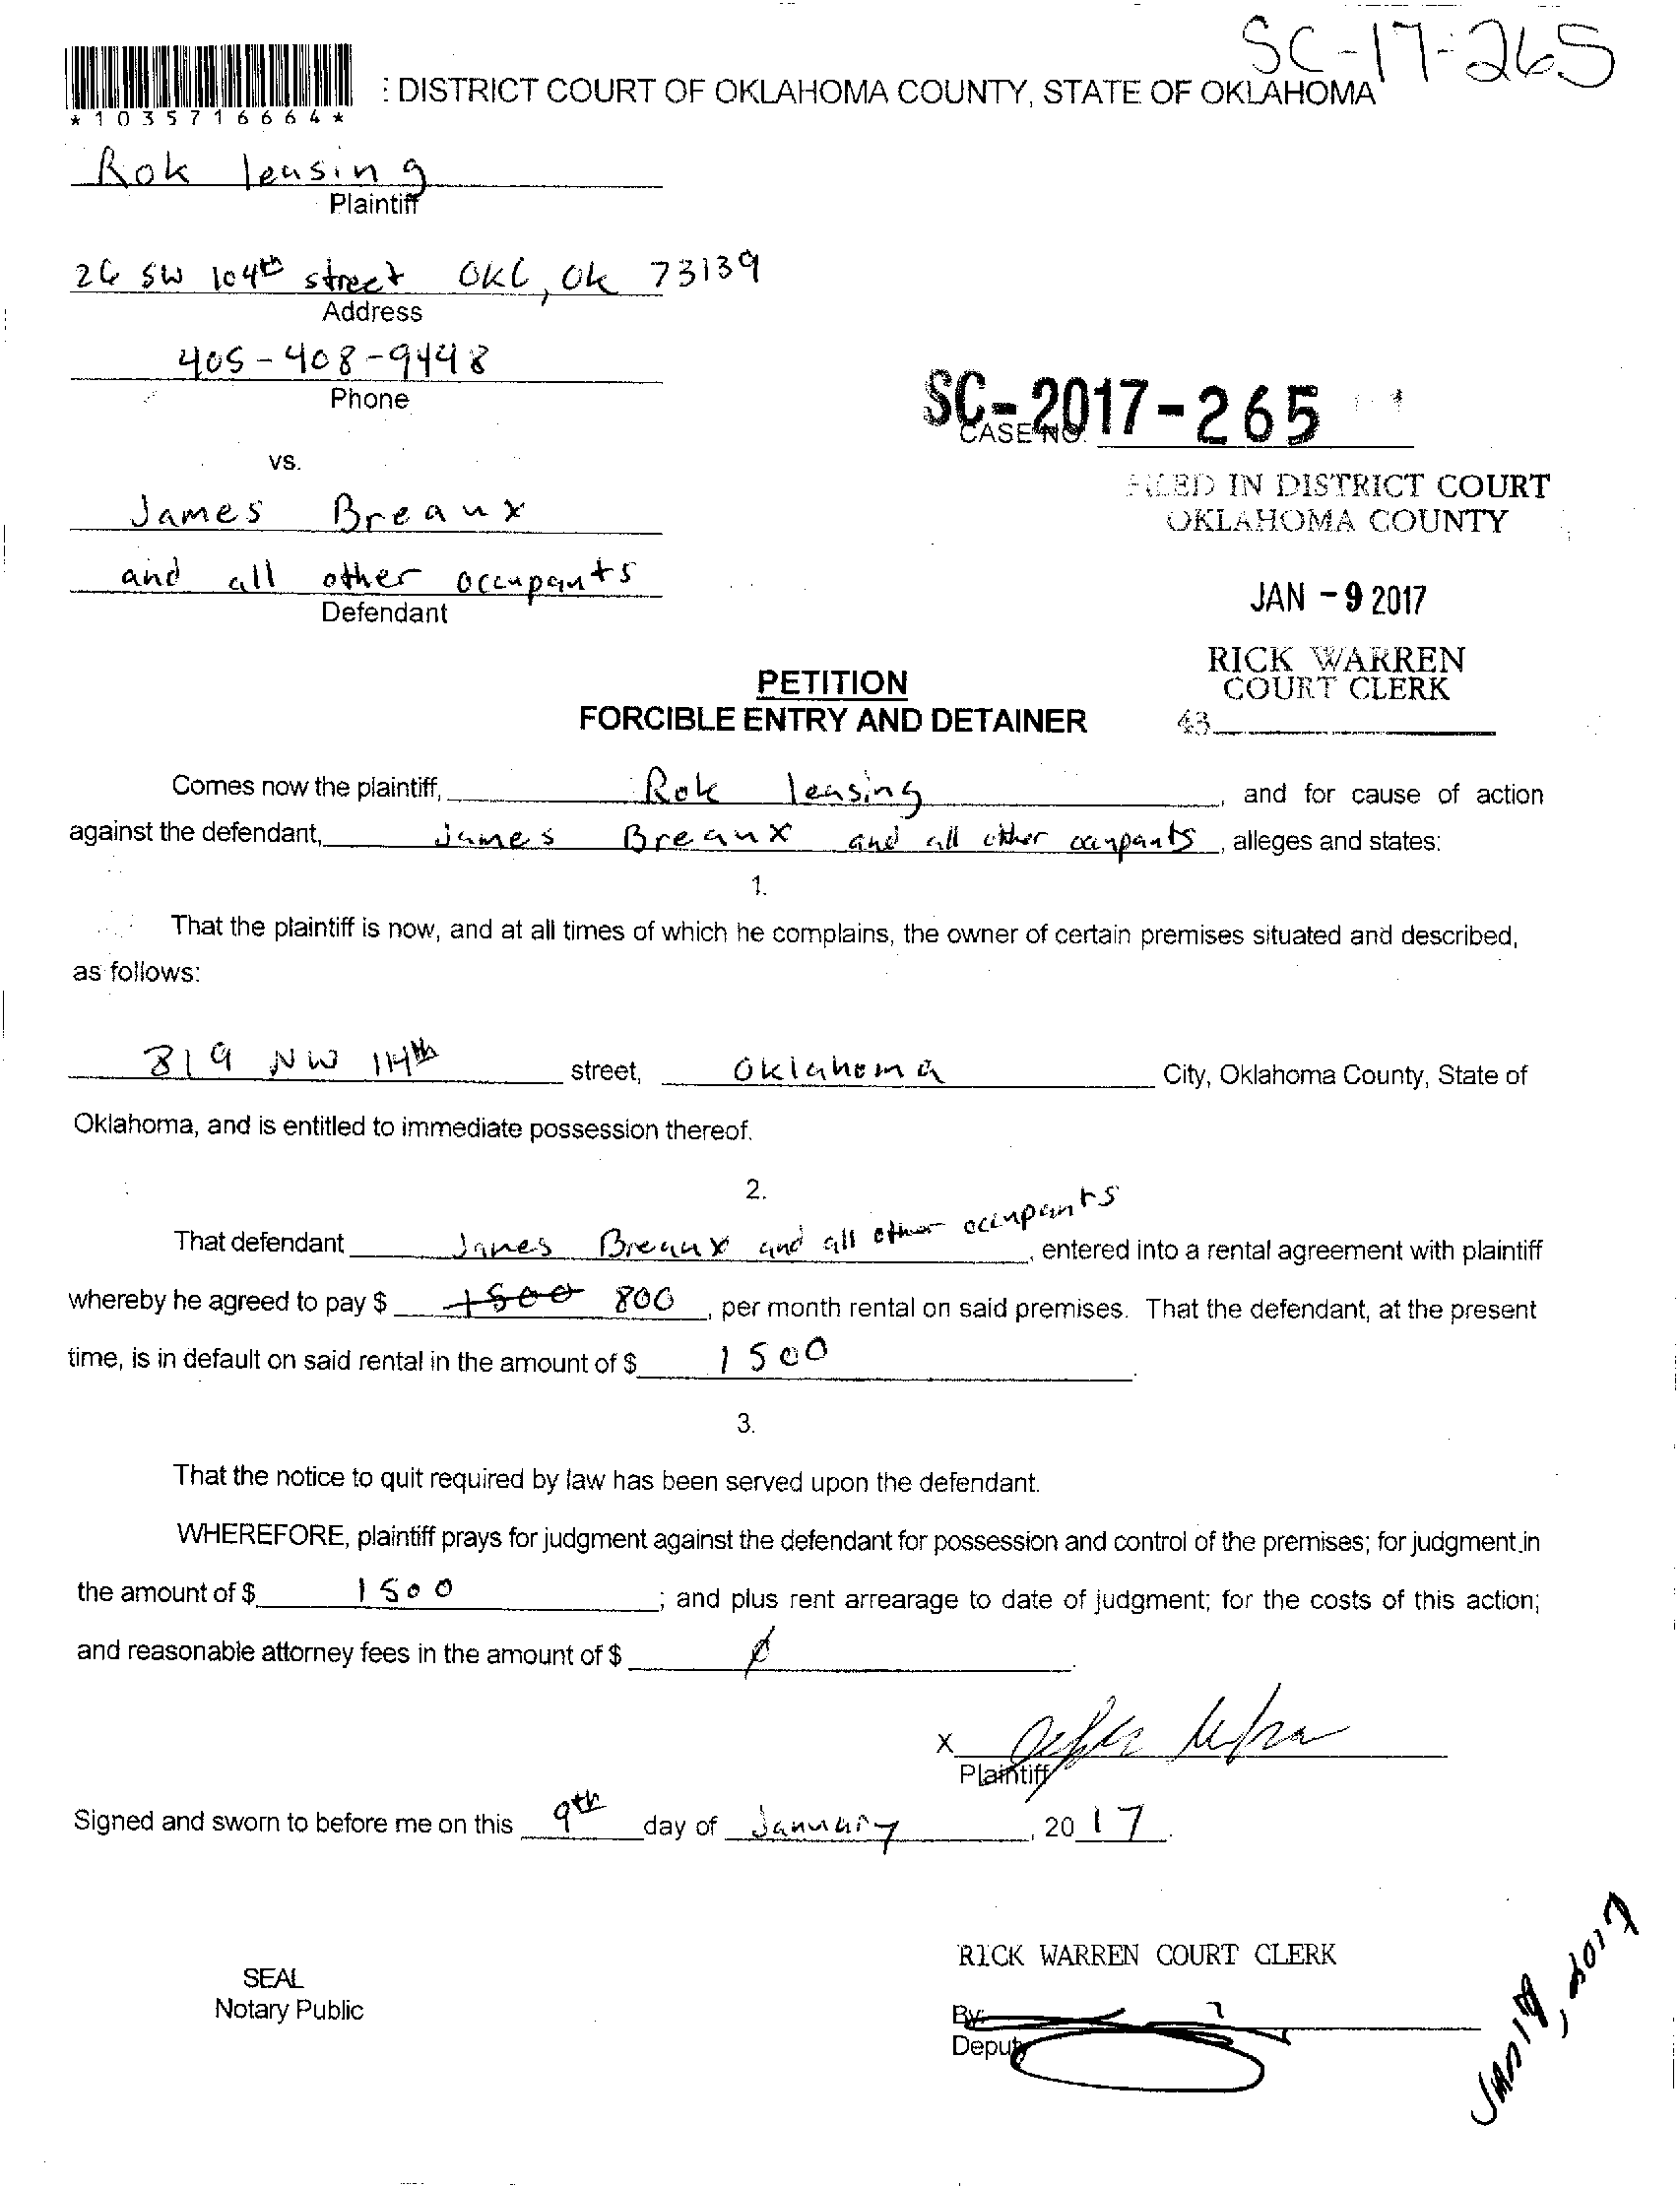 SC-17-265
: DISTRICT COURT OF OKLAHOMA COUNTY, STATE OF OKLAHOMA
*1035716664*
Rok leasing
Plaintiff
26 SW 104th street OKC, Ok 73139
Address
405-408-9448
Phone
SC-2017-265
CASE NO.
vs.
FILED IN DISTRICT COURT
OKLAHOMA COUNTY
James Breaux
and all other occupants
Defendant
JAN - 9 2017
RICK WARREN
COURT CLERK
43
PETITION
FORCIBLE ENTRY AND DETAINER
Comes now the plaintiff, Rok leasing, and for cause of action
against the defendant, James Breaux and all other occupants, alleges and states:
1.
That the plaintiff is now, and at all times of which he complains, the owner of certain premises situated and described,
as follows:
819 NW 114th street, Oklahoma City, Oklahoma County, State of
Oklahoma, and is entitled to immediate possession thereof.
2.
That defendant James Breaux and all other occupants, entered into a rental agreement with plaintiff
whereby he agreed to pay $ 1500 800, per month rental on said premises. That the defendant, at the present
time, is in default on said rental in the amount of $ 1500.
3.
That the notice to quit required by law has been served upon the defendant.
WHEREFORE, plaintiff prays for judgment against the defendant for possession and control of the premises; for judgment in
the amount of $ 1500; and plus rent arrearage to date of judgment; for the costs of this action;
and reasonable attorney fees in the amount of $
X
Plaintiff
Signed and sworn to before me on this 9th day of January, 2017.
RICK WARREN COURT CLERK
SEAL
Notary Public
By:
Deputy